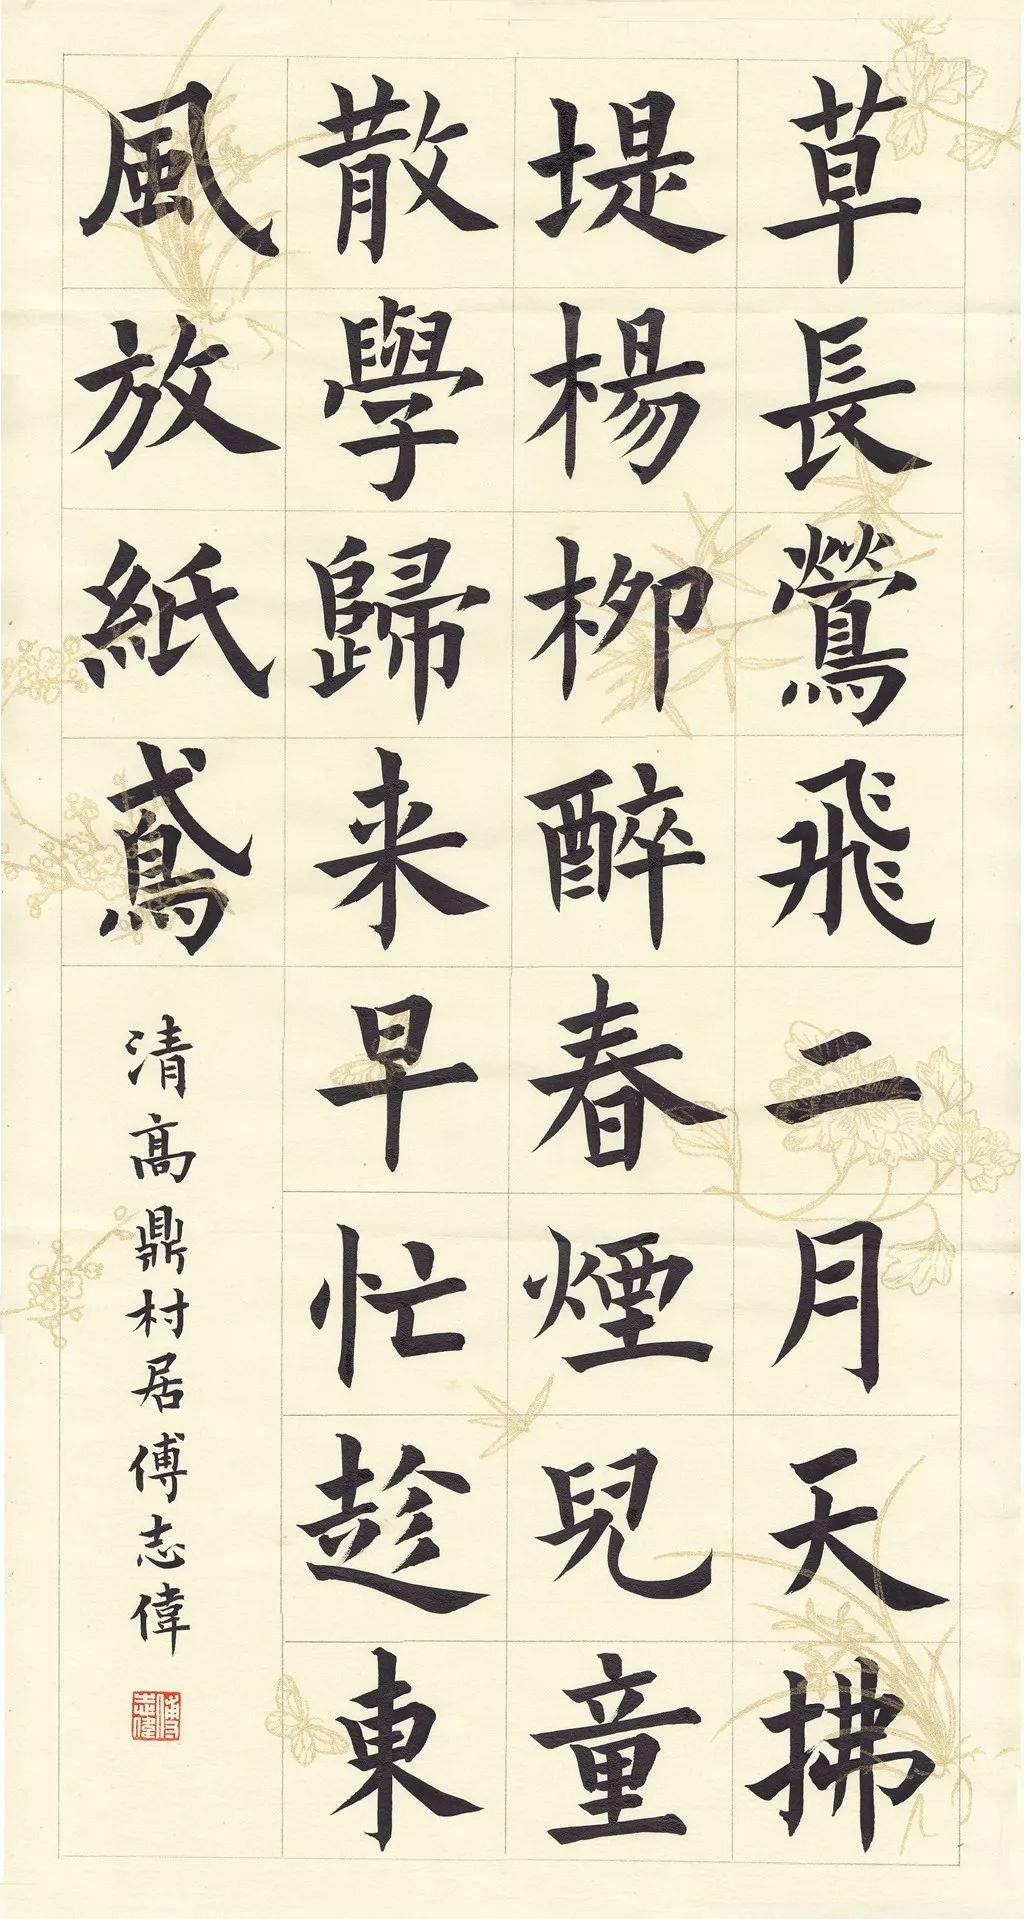 草長鶯飛二月天拂
堤楊柳醉春煙兒童
散學歸来早忙趁東
風放紙鳶
清高鼎村居傅志偉
傅志偉